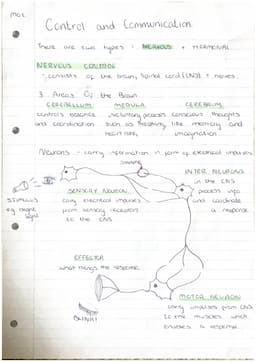 Control and Communication
There are two types : NERVOUS + HORMONAL
NERVOUS CONTROL
consists of the brain, spinal cord (CNS) + nerves.
3 Areas Of the Brain
CEREBELLUM MEDULLA CEREBRUM
controls balance and coordination
such as breathing, heart rate,
conscious thoughts like memory and imagination
Neurons - carry information in form of electrical impulses
SYNAPSE
STIMULUS
eg bright light
SENSORY NEURON
carry electrical impulses from sensory receptors to the CNS
INTER NEURONS
in the CNS
process info and coordinate a response
EFFECTOR
what brings the response
MOTOR NEURON
carry impulses from CNS to the muscles which enables a response